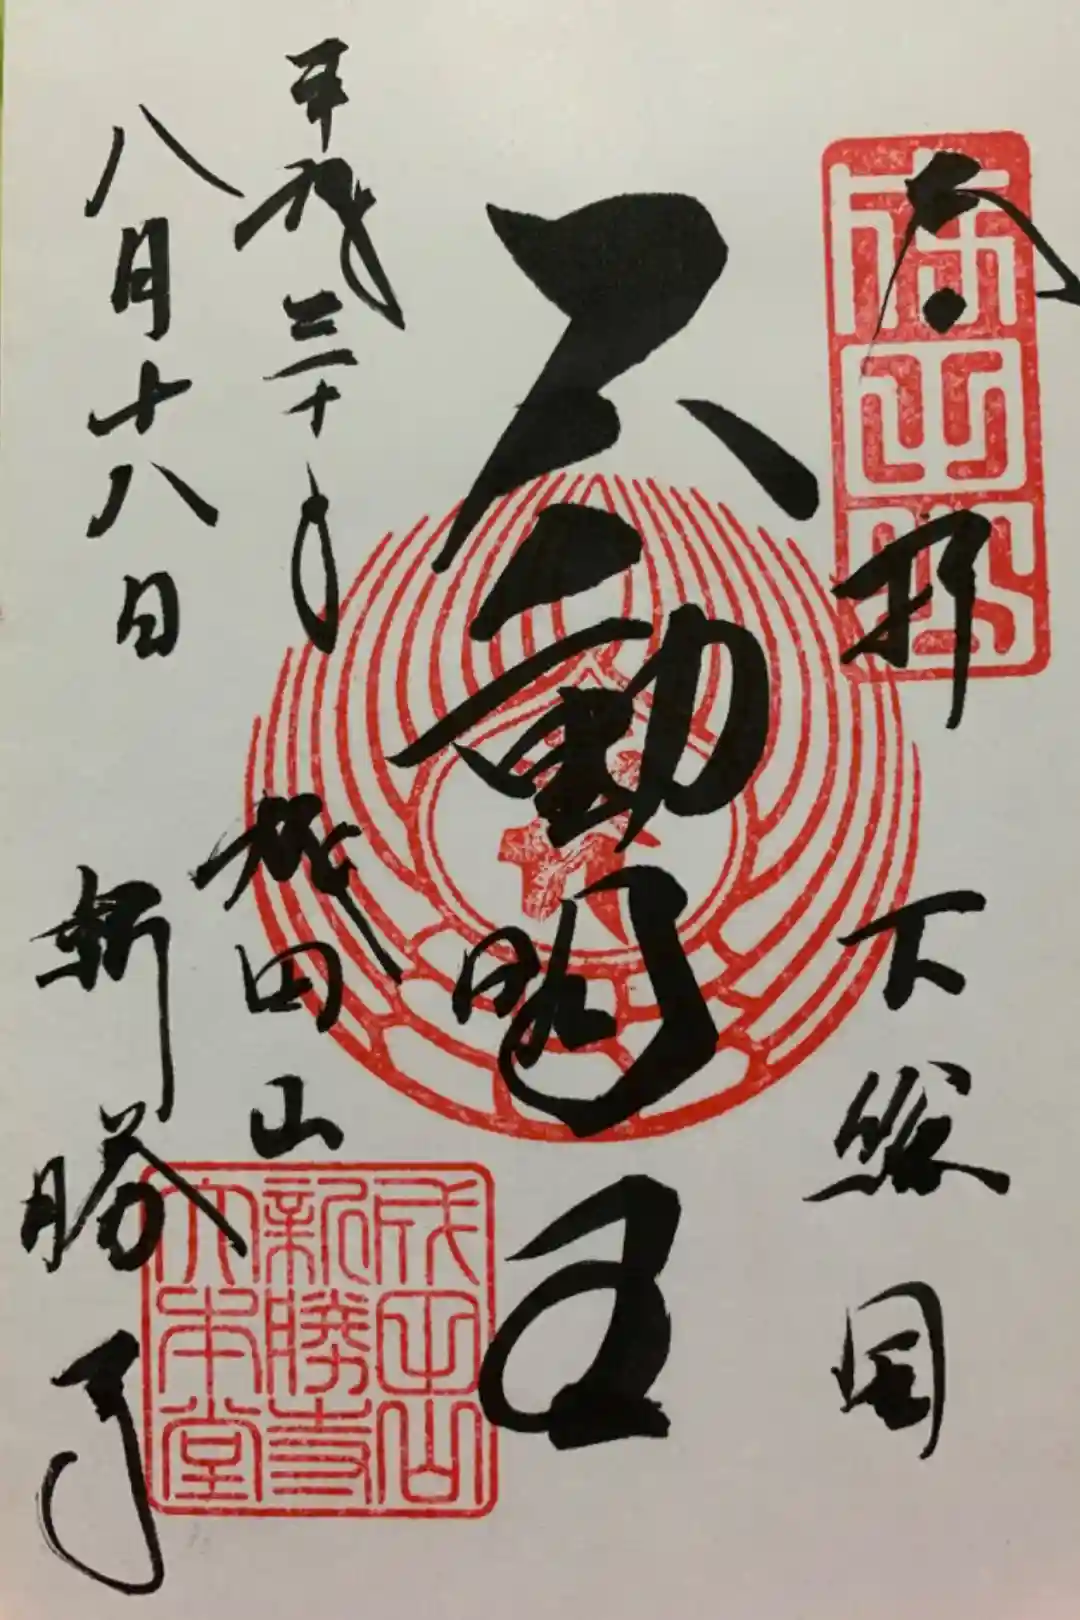 奉拝 下総国
成田山
不動明王
平成三十年 成田山
八月十八日 新勝寺
成田山
新勝寺
大本堂